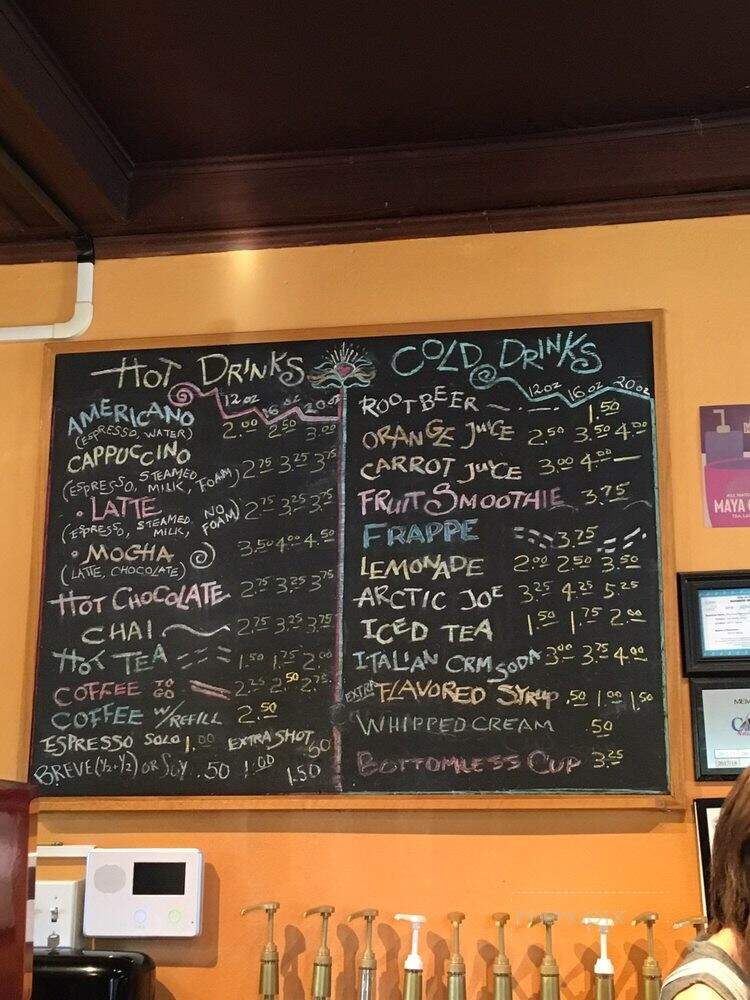 HOT DRINKS
12 oz 16 oz 20 oz
AMERICANO 2.00 2.50 3.00
(ESPRESSO, WATER)
CAPPUCCINO 2.75 3.25 3.75
(ESPRESSO, STEAMED MILK, FOAM)
• LATTE 2.75 3.25 3.75
(ESPRESSO, STEAMED MILK, NO FOAM)
• MOCHA 3.50 4.00 4.50
(LATTE, CHOCOLATE)
HOT CHOCOLATE 2.75 3.25 3.75
CHAI 2.75 3.25 3.75
HOT TEA 1.50 1.75 2.00
COFFEE TO GO 2.25 2.50 2.75
COFFEE W/REFILL 2.50
ESPRESSO SOLO 1.00 EXTRA SHOT .50
BREVE (1/2+1/2) OR SOY .50 1.00 1.50
COLD DRINKS
12 oz 16 oz 20 oz
ROOT BEER 1.50
ORANGE JUICE 2.50 3.50 4.00
CARROT JUICE 3.00 4.00 —
FRUIT SMOOTHIE 3.75
FRAPPE 3.75
LEMONADE 2.00 2.50 3.50
ARCTIC JOE 3.25 4.25 5.25
ICED TEA 1.50 1.75 2.00
ITALIAN CRM SODA 3.00 3.75 4.00
EXTRA FLAVORED SYRUP .50 1.00 1.50
WHIPPED CREAM .50
BOTTOMLESS CUP 3.25
MAYA